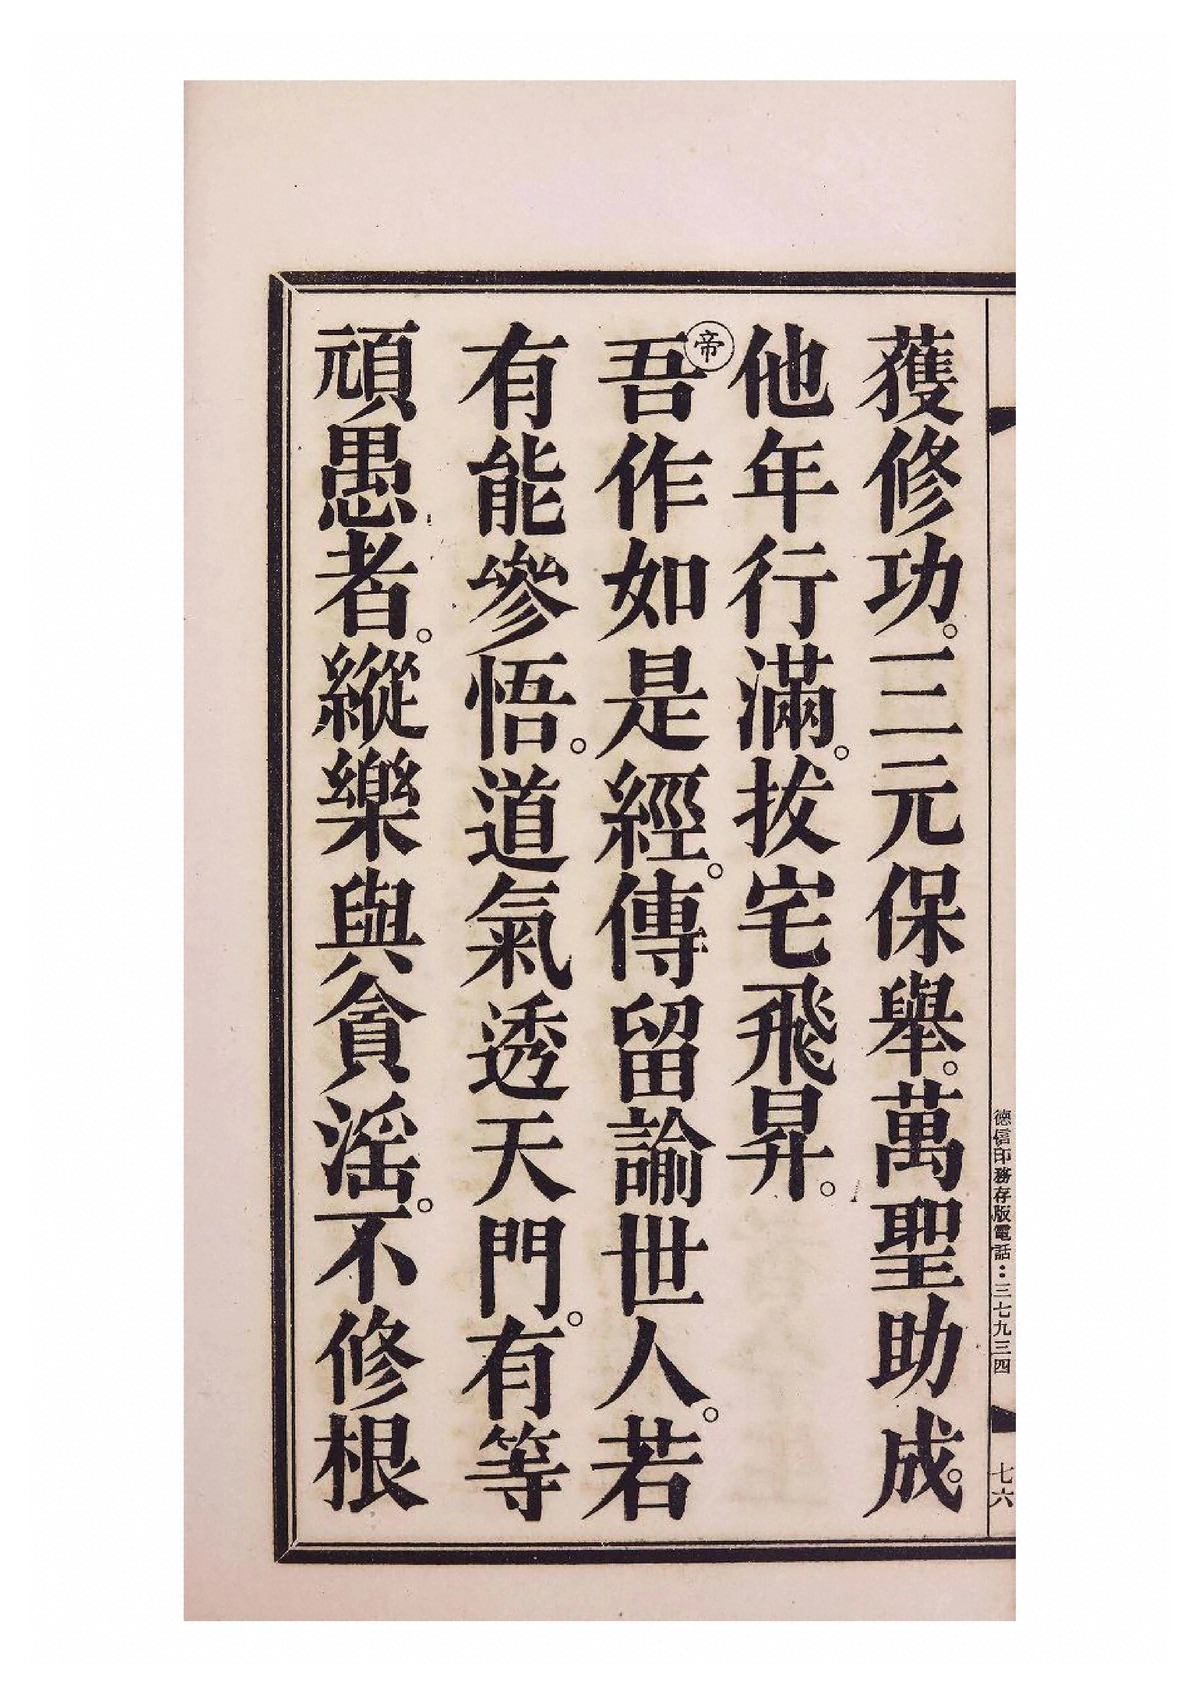 獲修功。三元保舉。萬聖助成。
他年行滿。拔宅飛昇。
帝
吾作如是經。傳留諭世人。若
有能參悟。道氣透天門。有等
頑愚者。縱樂與貪淫。不修根
德信印務存版電話：三七九三四
七六